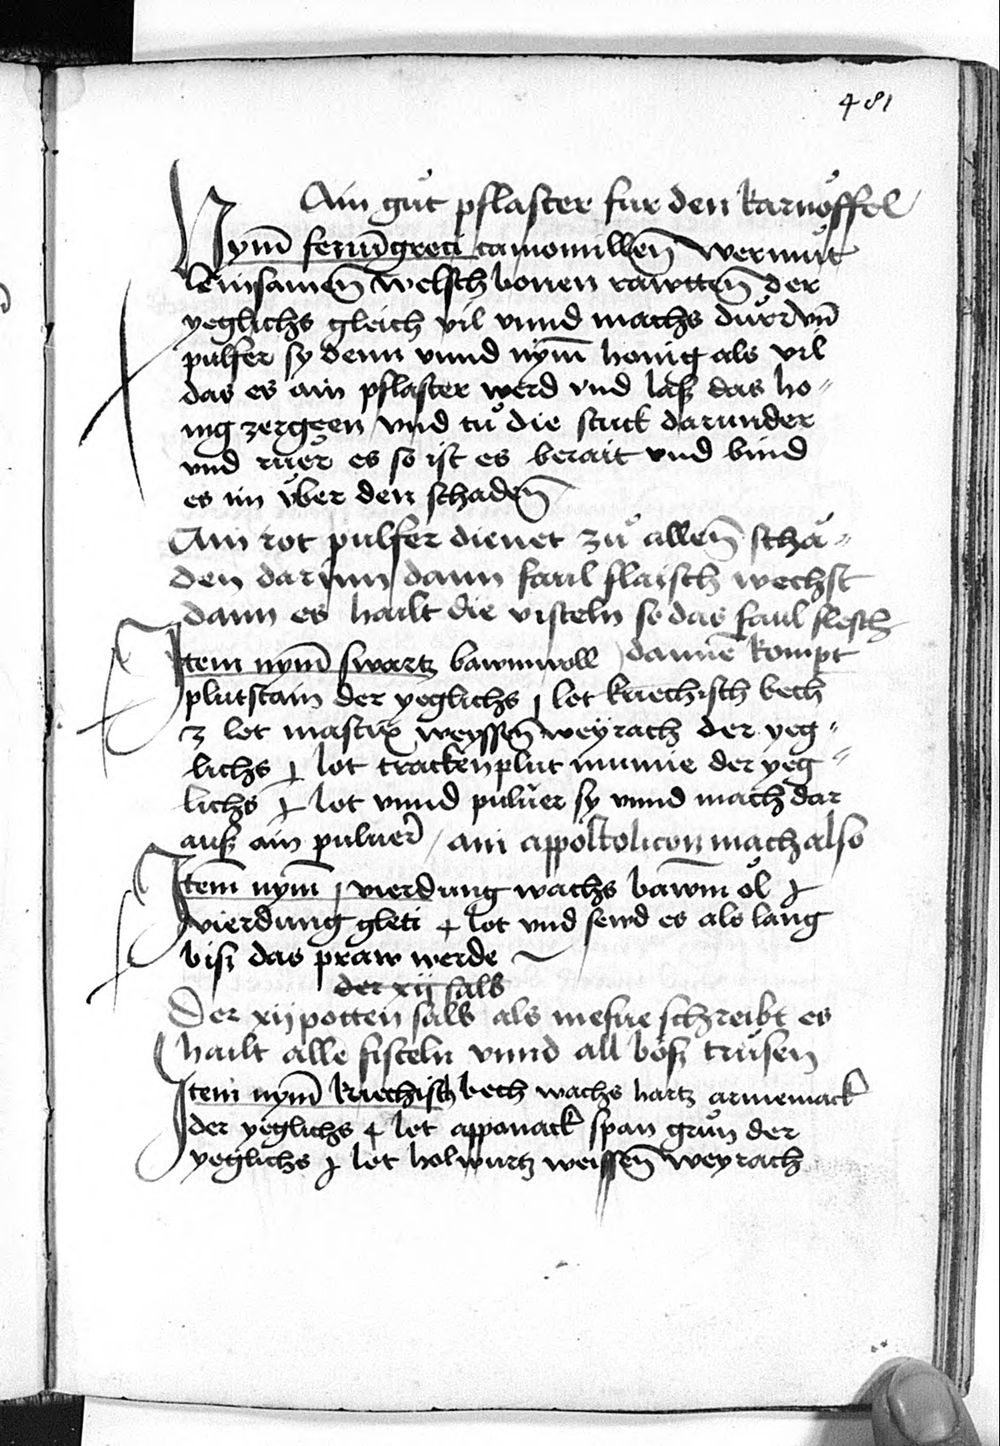 481
Ain guͦt pflaster fur den karnoͤffel
Nym̄ fenūgreci camomillen̄ wermuͦt
leinsamen̄ welsch bonen rawtten̄ der
yeglichs gleich vil vnnd machs duͤrr vn̄
pulfer sy denn vnnd nym̄ honig als vil
das es ain pflaster werd vnd laß das ho-
nig zergeen vnd tuͦ die stuck darunder
vnd ruͤer es so ist es berait vnd bind
es im vͤber den schaden̄
Ain rot pulfer dienet zuͦ allen̄ schaͤ-
den darjnn dann faul flaisch wechst
dann es hailt die visteln so das faul flesch
dannē kompt
Item nym̄ swartz bawmwoll
plutstain der yeglichs j lot kriechisch bech
3 lot mastix weyssen̄ weyrach der yeg-
lichs j lot trackenplut mumie der yeg-
lichs j lot vnnd puluer sy vnnd mach dar
auß ain puluer / ain appostolicon mach also
Item̄ nym̄ j vierdung wachs baw̄m oͤl j
vierdung gleti 4 lot vnd sewd es als lang
biß das praw werde
der xij salb
Der xij potten salb als mesue schreibt es
hailt alle fisteln vnnd all boͤß truͤsen
Item nym̄ kriechisch bech wachs hartz armemack
der yeglichs 4 lot appanack span gruͤn der
yeglichs j lot holwurtz weissen̄ weyrach